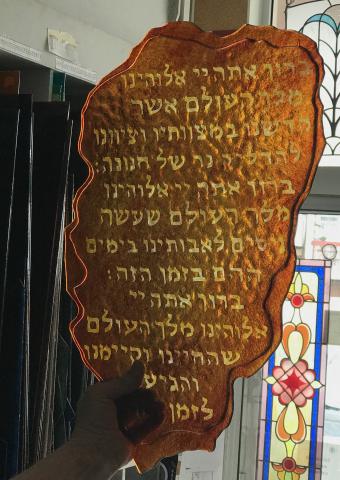 ברוך אתה יי אלוהינו
מלך העולם אשר
קדשנו במצוותיו וציוונו
להדליק נר של חנוכה:
ברוך אתה יי אלוהינו
מלך העולם שעשה
ניסים לאבותינו בימים
ההם בזמן הזה:
ברוך אתה יי
אלוהינו מלך העולם
שהחיינו וקיימנו
והגיע
לזמן